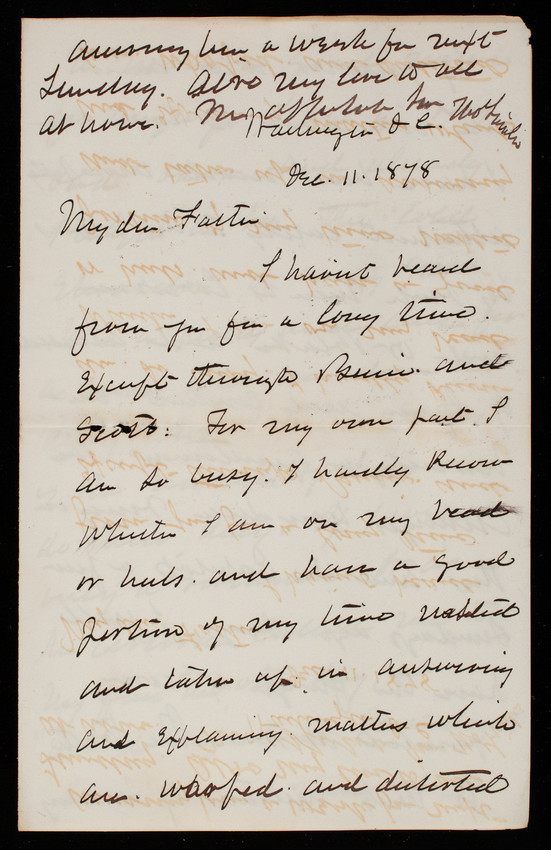 answering him a week for next
Sunday. Also my love to all
at home. Yr affectionate Son Thos Lincoln
Washington D C.
Dec. 11. 1878
My dear Father
I havint heard
from you for a long time.
Except through Bernie and
Scott. For my own part I
am so busy. I hardly know
whether I am on my head
or heels. and have a good
portion of my time
and taken up in answering
and explaining. matters which
are. warped. and distorted